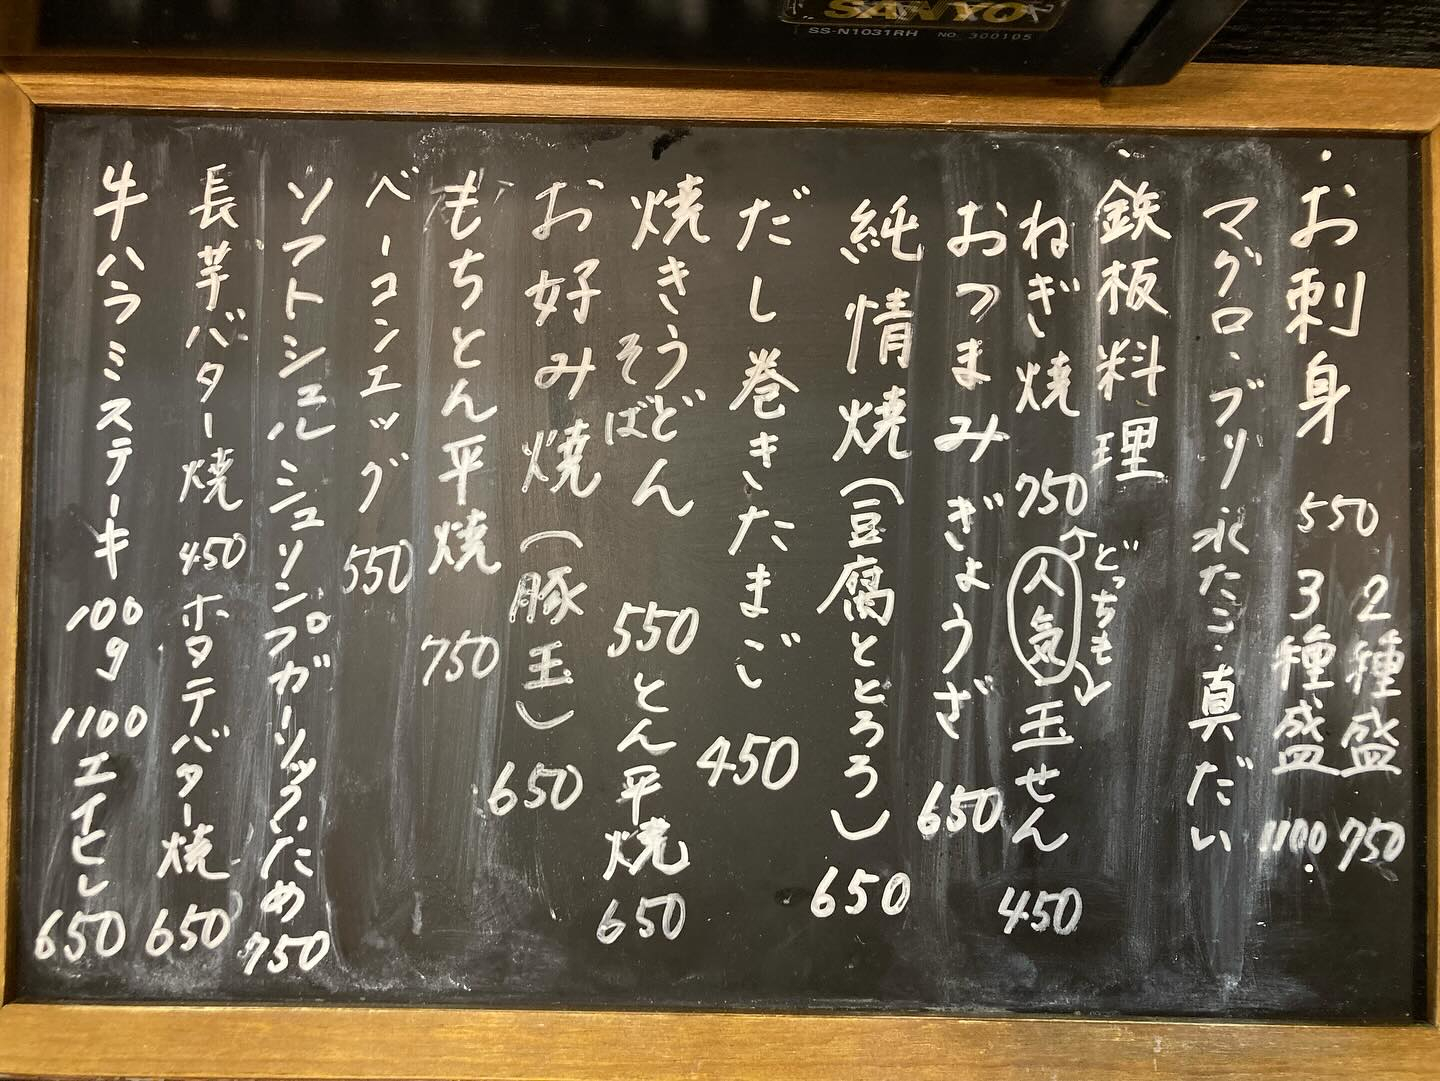 SANYO
SS-N1031RH NO. 300105
・お刺身 550 2種盛 750
3種盛 1100
マグロ・ブリ 水たこ・真だい
・鉄板料理
どっちも
ねぎ焼 750 人気 玉せん 450
おつまみぎょうざ 650
純情焼(豆腐ととろろ) 650
だし巻きたまご 450
焼きうどん 550 とん平焼 650
そば
お好み焼(豚玉) 650
もちとん平焼 750
ベーコンエッグ 550
ソフトシェルシュリンプガーリックいため 750
長芋バター焼 450 ホタテバター焼 650
牛ハラミステーキ 100g 1100 エイヒレ 650